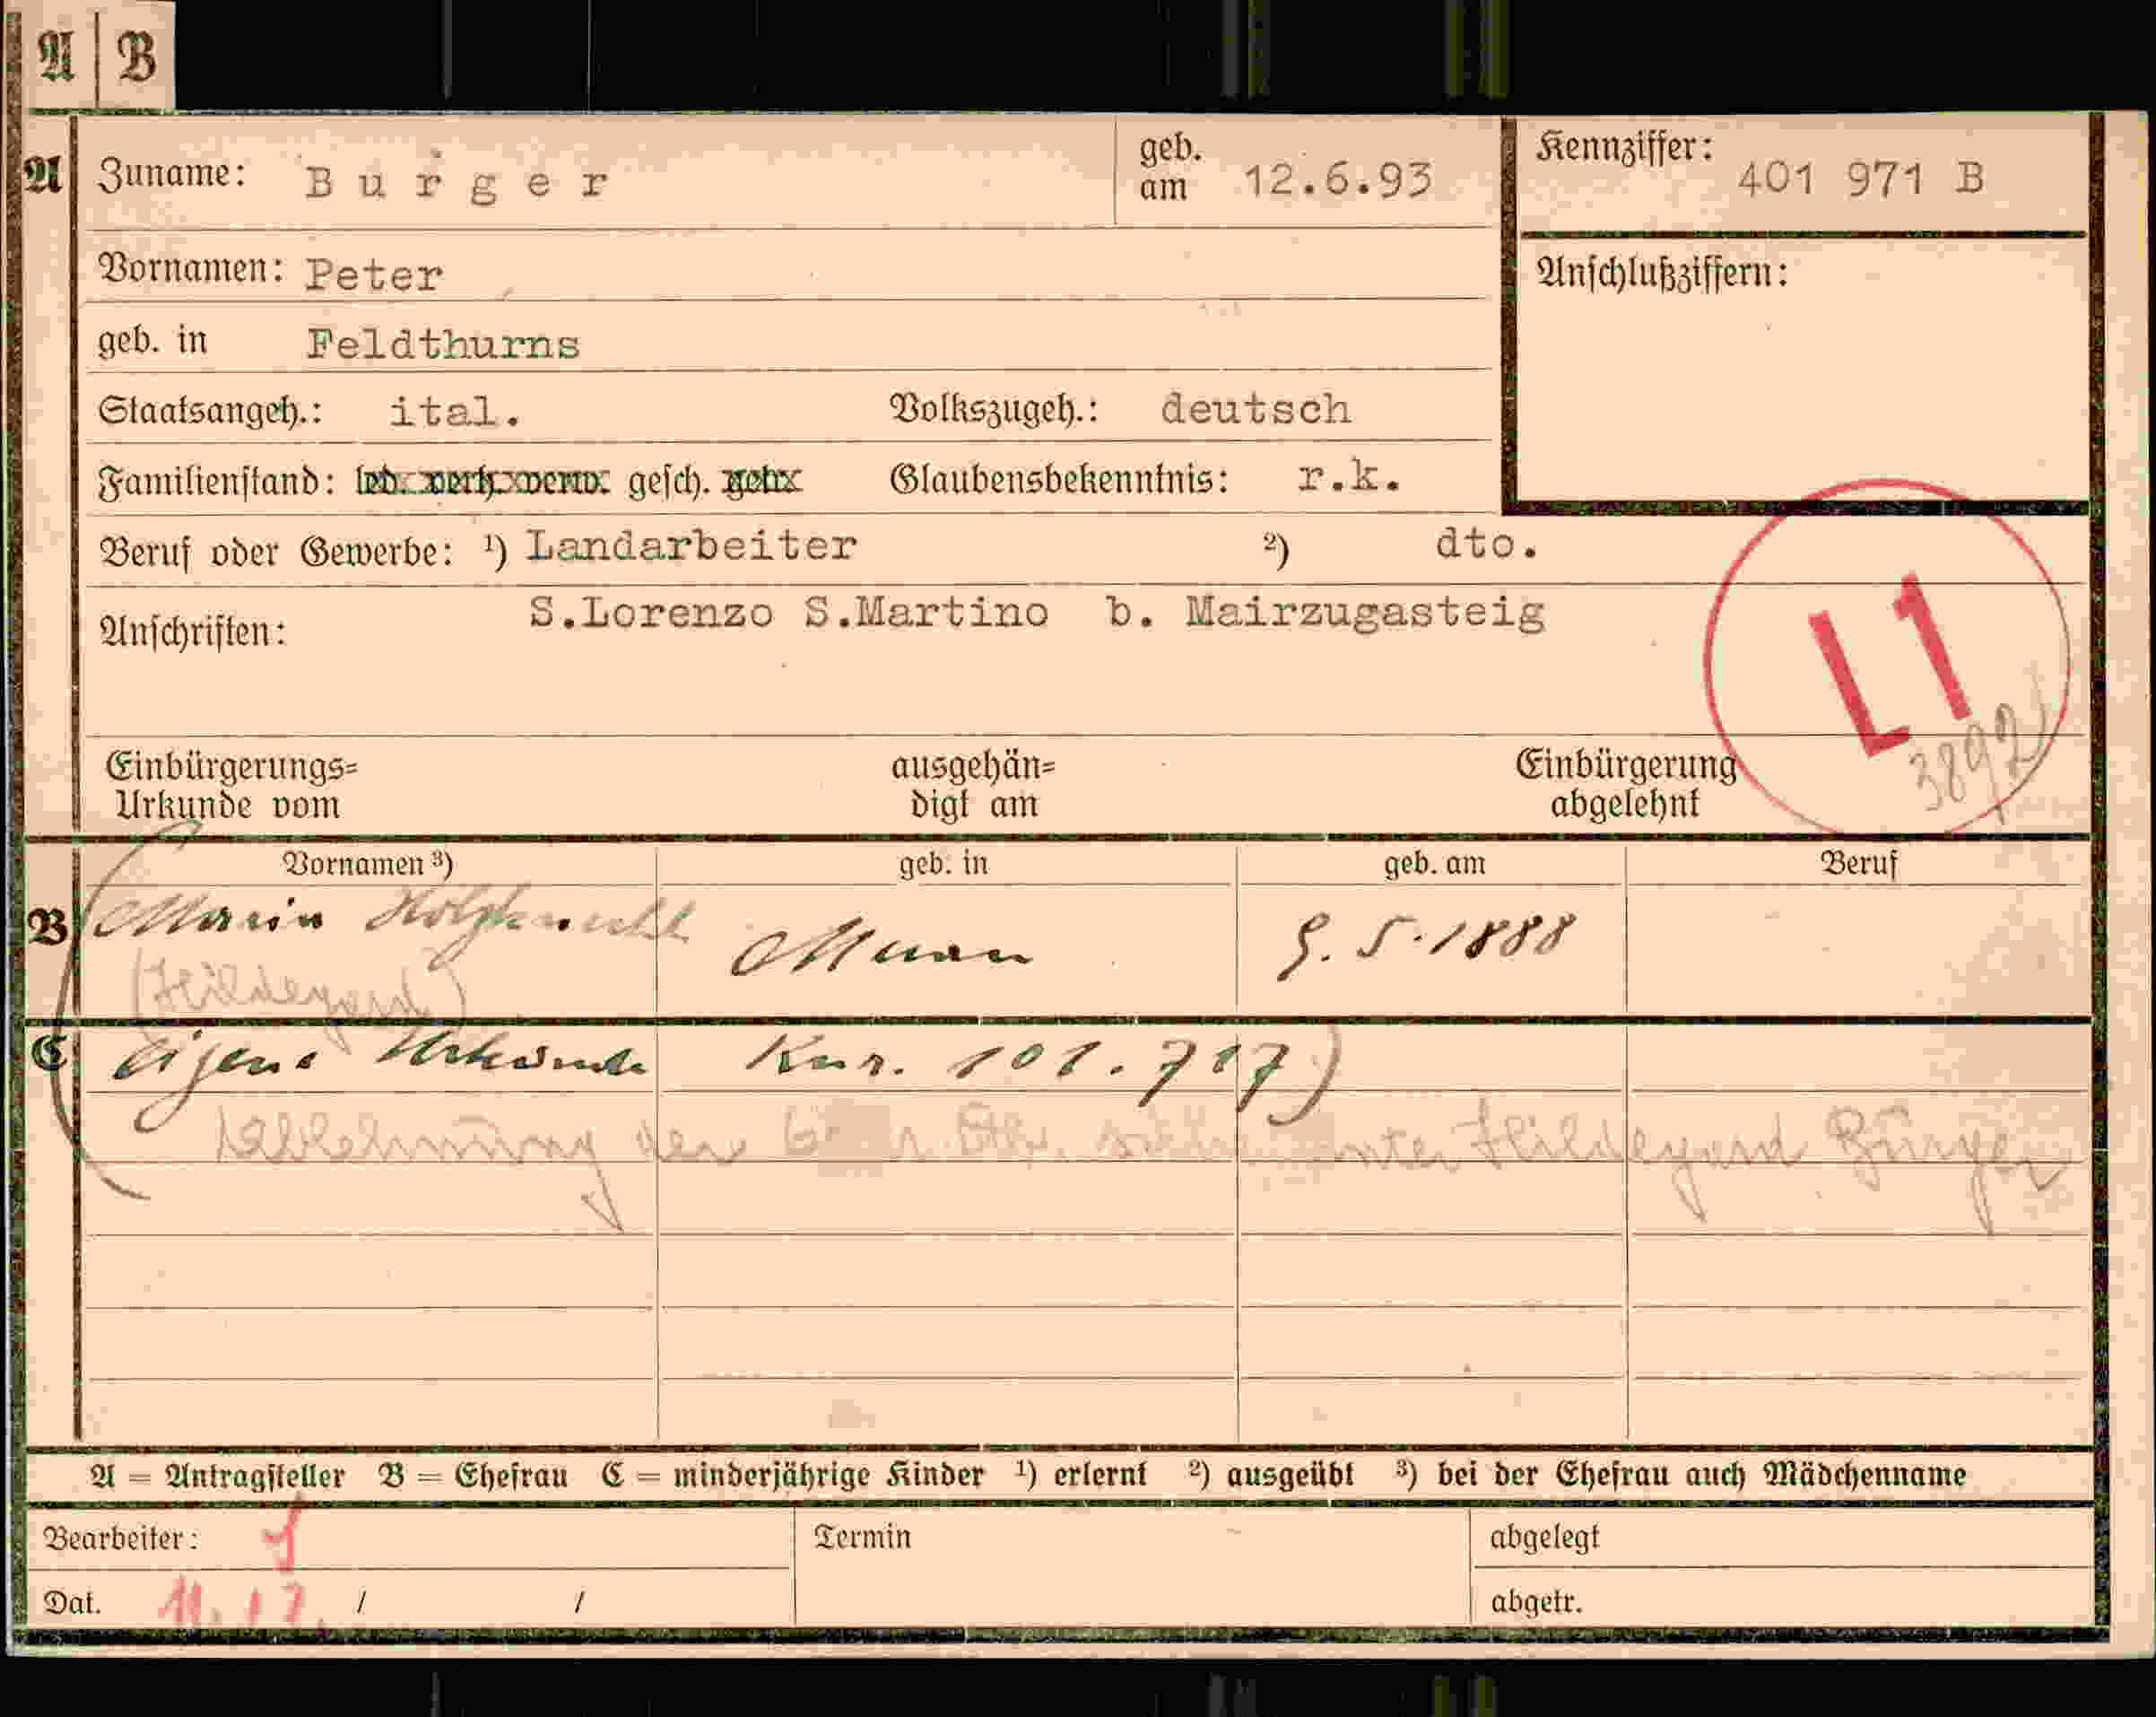 A | B
A Zuname: Burger geb. am 12.6.93 Kennziffer: 401 971 B
Vornamen: Peter Anschlußziffern:
geb. in Feldthurns
Staatsangeh.: ital. Volkszugeh.: deutsch
Familienstand: led. verh. verw. gesch. getr. Glaubensbekenntnis: r.k.
Beruf oder Gewerbe: ¹) Landarbeiter ²) dto.
Anschriften: S.Lorenzo S.Martino b. Mairzugasteig
L1
3892
Einbürgerungs= ausgehän= Einbürgerung
Urkunde vom digt am abgelehnt
Vornamen ³) geb. in geb. am Beruf
B Maria Holzknecht Meran 9.5.1888
(Hildegard)
C Eigene Urkunde Knr. 101.717)
Ablehnung der siehe unter Hildegard Burger
A = Antragsteller B = Ehefrau C = minderjährige Kinder ¹) erlernt ²) ausgeübt ³) bei der Ehefrau auch Mädchenname
Bearbeiter: Termin abgelegt
Dat. 11.12. / / abgetr.